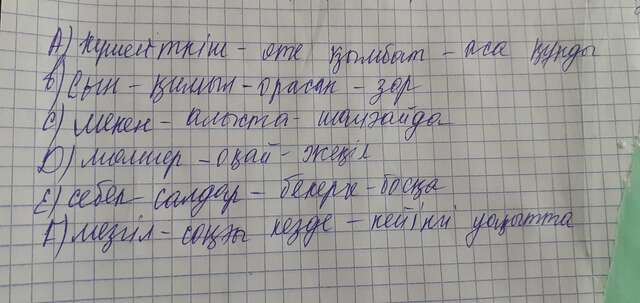 А) Күшейткіш - өте қымбат - аса құнды
B) Сын - қимыл - орасан - зор
C) мекен - алыста - шалғайда
D) мөлшер - оңай - жеңіл
E) себеп - салдар - бекерге - босқа
F) мезгіл - соңғы кезде - кейінгі уақытта